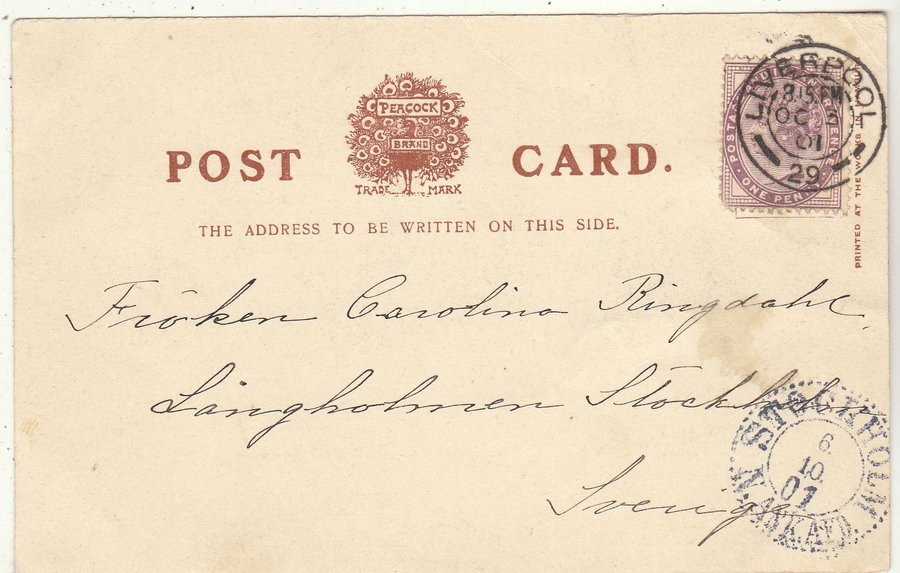 PEACOCK
BRAND
TRADE MARK
POST CARD.
THE ADDRESS TO BE WRITTEN ON THIS SIDE.
LIVERPOOL
8.15 PM
OC 3
01
29
POSTAGE
ONE PENNY
PRINTED AT THE WORKS IN
Fröken Carolina Ringdahl
Långholmen Stockholm
Sverige
STOCKHOLM
6.
10.
01
ANK.AFD.